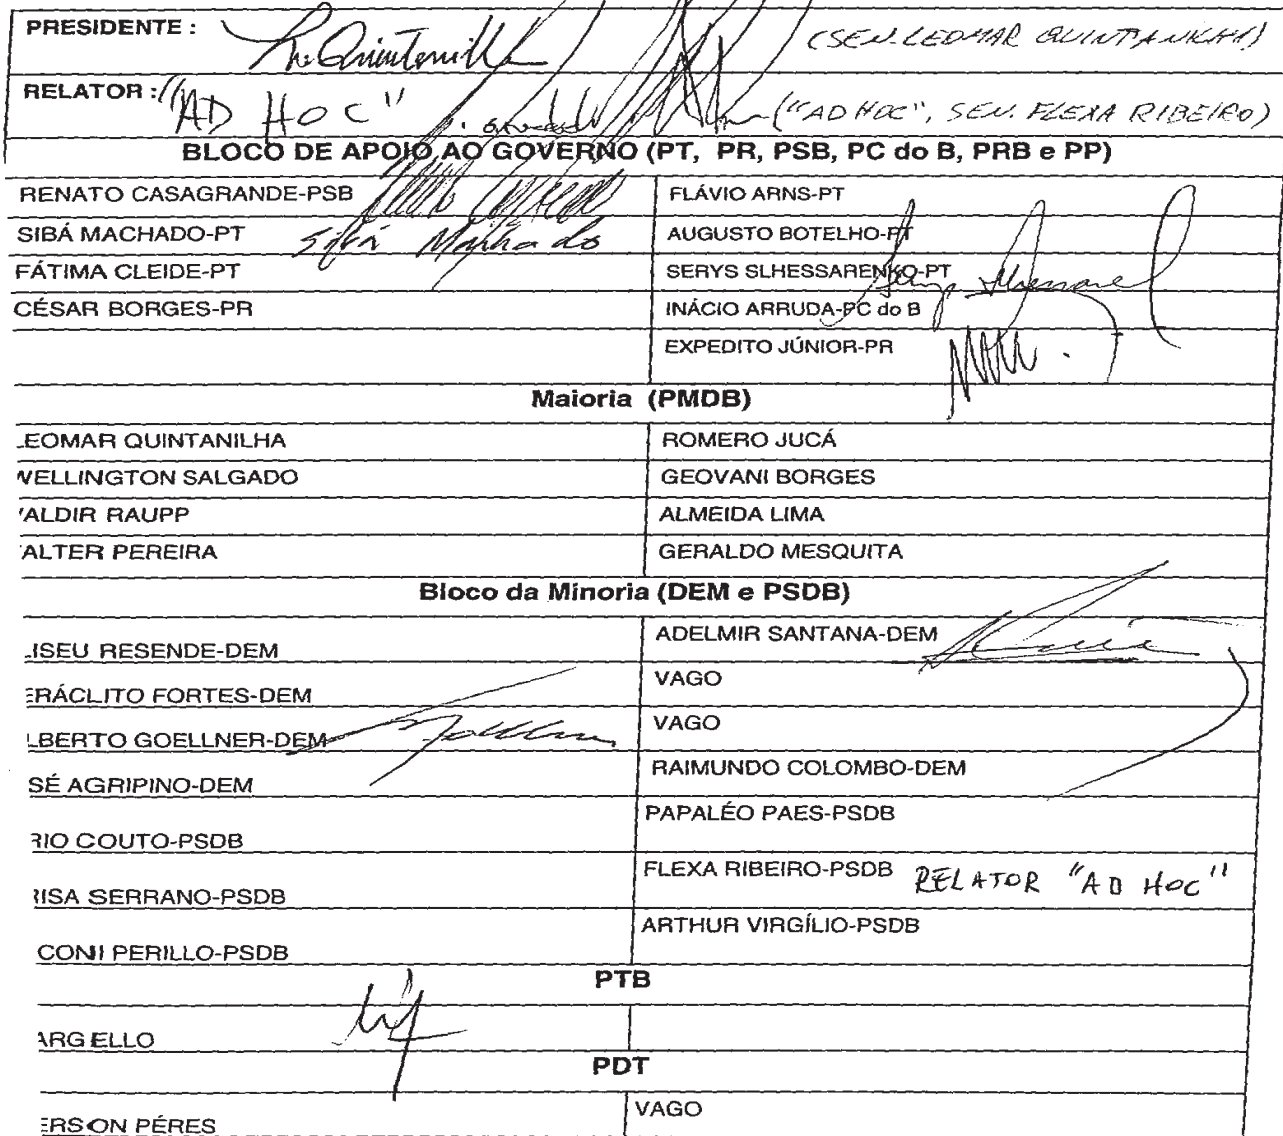 PRESIDENTE : (SEN. LEOMAR QUINTANILHA)
RELATOR : "AD HOC" ("AD HOC", SEN. FLEXA RIBEIRO)
BLOCO DE APOIO AO GOVERNO (PT, PR, PSB, PC do B, PRB e PP)
RENATO CASAGRANDE-PSB FLÁVIO ARNS-PT
SIBÁ MACHADO-PT Sibá Machado AUGUSTO BOTELHO-PT
FÁTIMA CLEIDE-PT SERYS SLHESSARENKO-PT
CÉSAR BORGES-PR INÁCIO ARRUDA-PC do B
EXPEDITO JÚNIOR-PR
Maioria (PMDB)
EOMAR QUINTANILHA ROMERO JUCÁ
WELLINGTON SALGADO GEOVANI BORGES
ALDIR RAUPP ALMEIDA LIMA
ALTER PEREIRA GERALDO MESQUITA
Bloco da Minoria (DEM e PSDB)
ISEU RESENDE-DEM ADELMIR SANTANA-DEM
ERÁCLITO FORTES-DEM VAGO
LBERTO GOELLNER-DEM VAGO
SÉ AGRIPINO-DEM RAIMUNDO COLOMBO-DEM
RIO COUTO-PSDB PAPALÉO PAES-PSDB
RISA SERRANO-PSDB FLEXA RIBEIRO-PSDB RELATOR "AD HOC"
CONI PERILLO-PSDB ARTHUR VIRGÍLIO-PSDB
PTB
ARGELLO
PDT
ERSON PÉRES VAGO